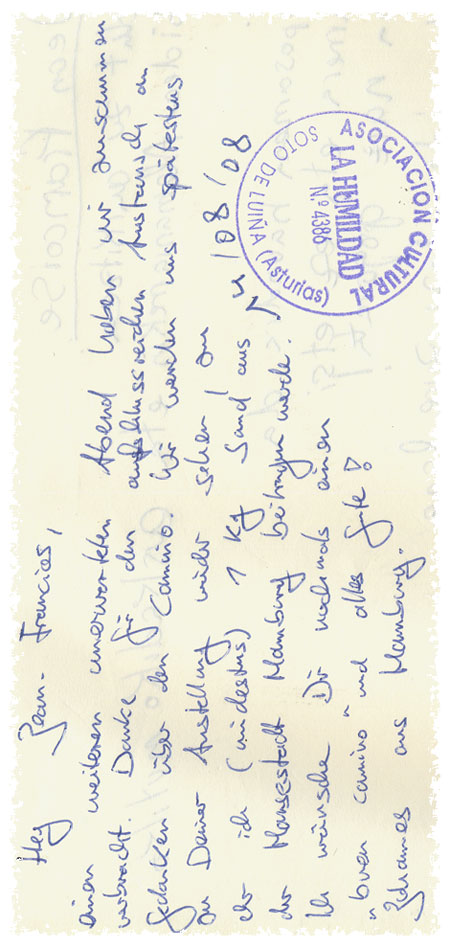 Hey Jean-Francies,
einen weiteren unerwarteten Abend haben wir zusammen
verbracht. Danke für den aufschlussreichen Austausch an
Gedanken über den Camino. Wir werden uns spätestens
zu Deiner Austellung wider sehen zu
der ich (mindestns) 1 kg Sand aus
der Hansestadt Hamburg beitragen werde.
14/08/'08
Ich wünsche Dir nochmals einen
"buen camino" und alles gute!
Johannes aus Hamburg.
ASOCIACIÓN CULTURAL
LA HUMILDAD
Nº 4386
SOTO DE LUIÑA (Asturias)